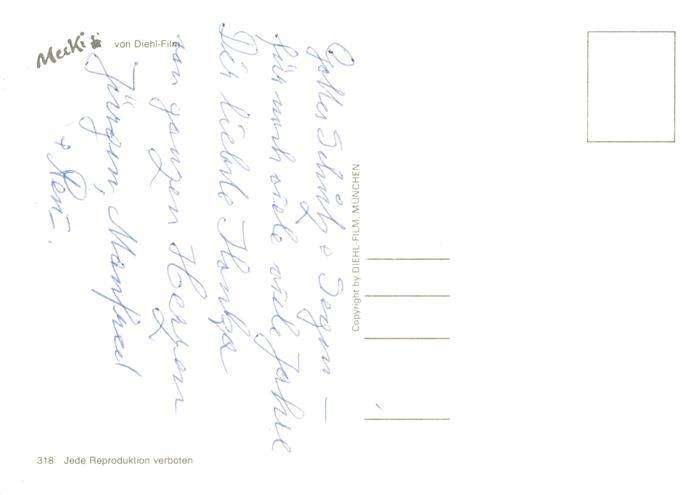 Mecki von Diehl-Film
Gottes Schutz + Segen –
für noch viele viele Jahre
Dir liebste
von ganzen Herzen
Jürgen, Manfred
+
Copyright by DIEHL-FILM, MÜNCHEN
318 Jede Reproduktion verboten